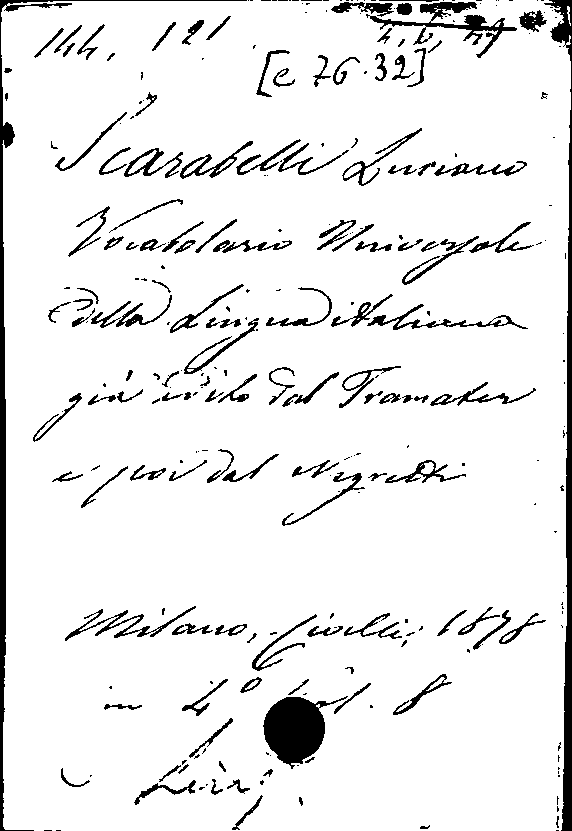 144. 121
2, 6, 49
[e 76.32]
Scarabelli Luciano
Vocabolario Universale
della Lingua italiana
già edito dal Tramater
e poi dal Negretti
Milano, Ciolli, 1878
in 4° Vol. 8